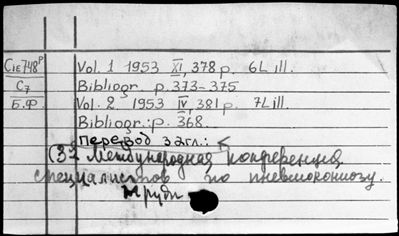 CIE748P Vol. 1 1953 XI, 378 p. 6L ill.
C7 Bibliogr. p. 373-375
Б.Ф. Vol. 2 1953 IV, 381 p. 7L ill.
Bibliogr.: p. 368.
Перевод загл.:
(3я Международная конференция
специалистов по пневмокониозу.
Труды